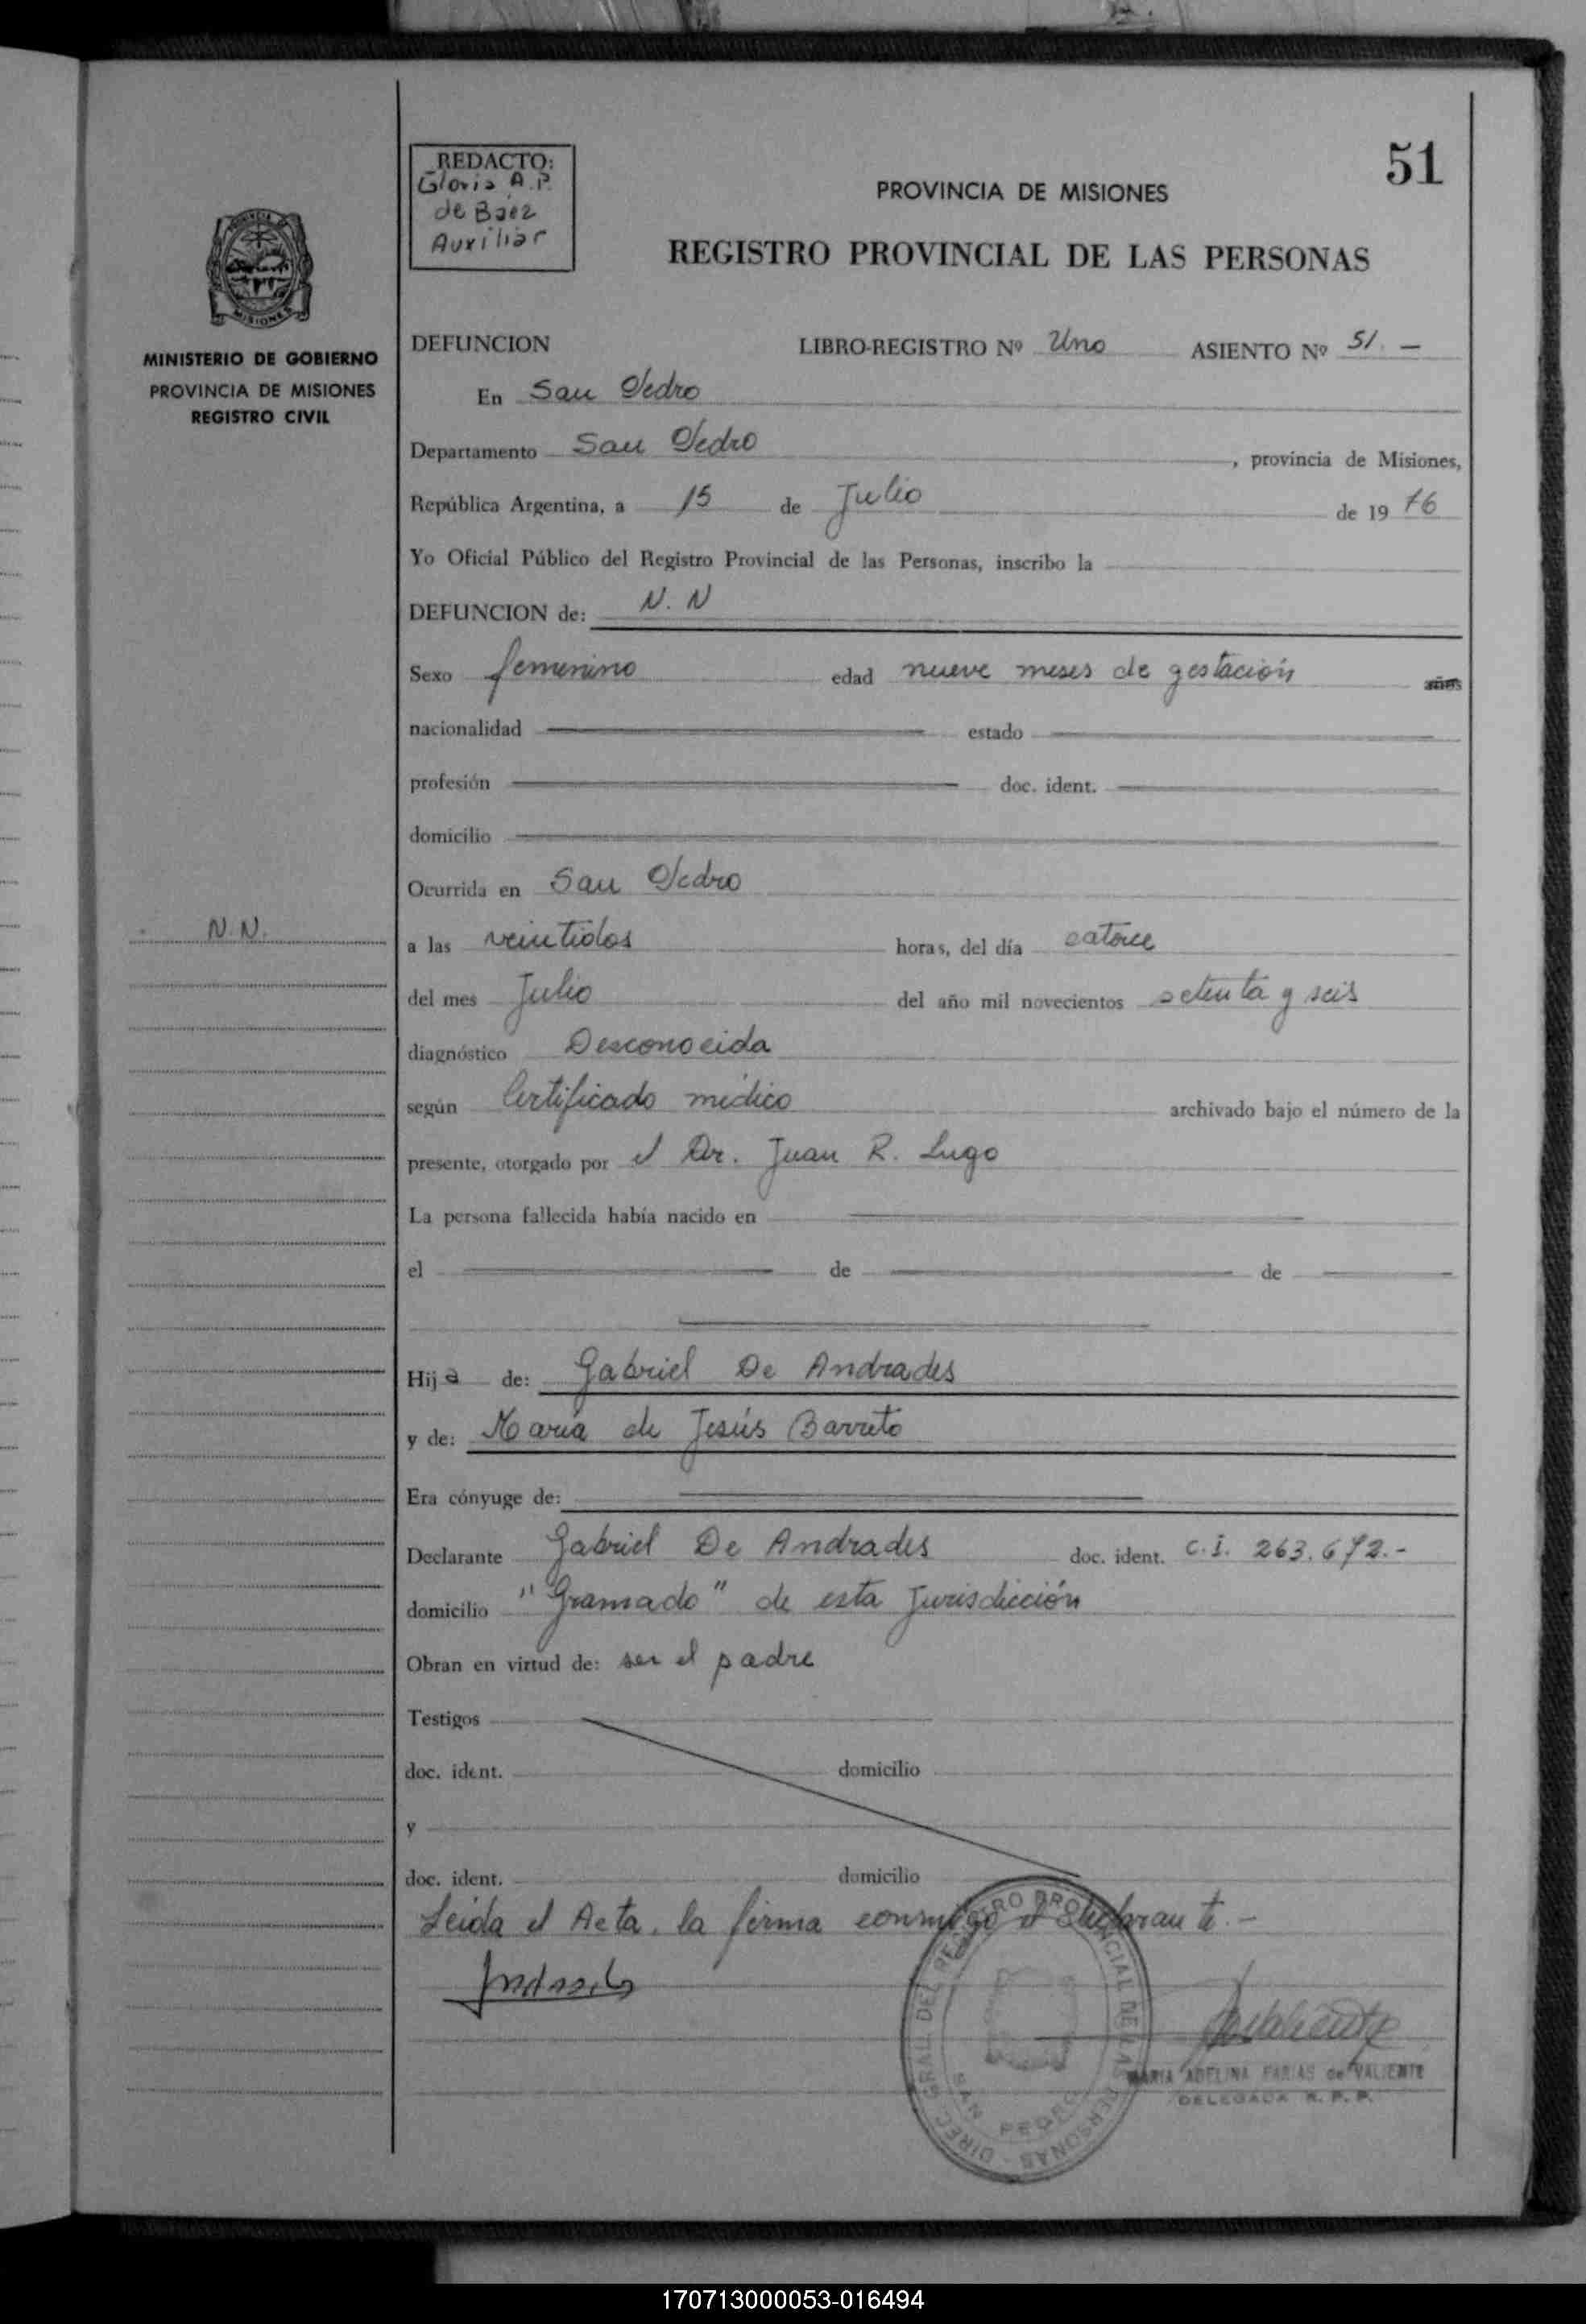 51
REDACTO:
Gloria A. P.
de Baez
Auxiliar
PROVINCIA DE MISIONES
REGISTRO PROVINCIAL DE LAS PERSONAS
MISIONES
MINISTERIO DE GOBIERNO
PROVINCIA DE MISIONES
REGISTRO CIVIL
DEFUNCION LIBRO-REGISTRO Nº Uno ASIENTO Nº 51. —
En San Pedro
Departamento San Pedro, provincia de Misiones,
República Argentina, a 15 de Julio de 1976
Yo Oficial Público del Registro Provincial de las Personas, inscribo la
DEFUNCION de: N. N
Sexo femenino edad nueve meses de gestación años
nacionalidad — estado —
profesión — doc. ident. —
domicilio —
Ocurrida en San Pedro
N. N.
a las veintidos horas, del día catorce
del mes Julio del año mil novecientos setenta y seis
diagnóstico Desconocida
según Certificado médico archivado bajo el número de la
presente, otorgado por el Dr. Juan R. Lugo
La persona fallecida había nacido en —
el — de — de —
Hija de: Gabriel De Andrades
y de: María de Jesús Barreto
Era cónyuge de: —
Declarante Gabriel De Andrades doc. ident. C.I. 263.672.-
domicilio "Gramado" de esta Jurisdicción
Obran en virtud de: ser el padre
Testigos
doc. ident. domicilio
y
doc. ident. domicilio
Leida el Acta, la firma conmigo el Declarante.-
DIREC. GRAL. DEL REGISTRO PROVINCIAL DE LAS PERSONAS
SAN PEDRO
MARIA ADELINA FARIAS de VALIENTE
DELEGADA R. P. P.
170713000053-016494